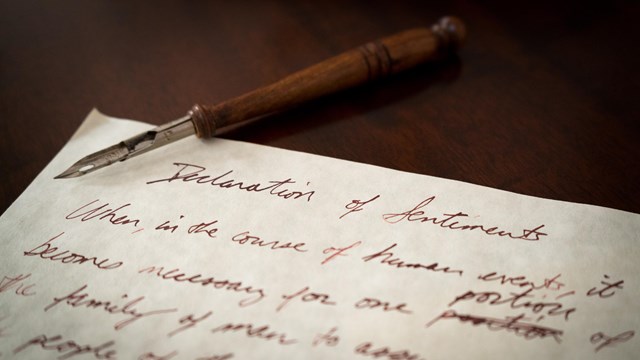 Declaration of Sentiments
When, in the course of human events, it
becomes necessary for one portion of
the family of man to assu
people of the